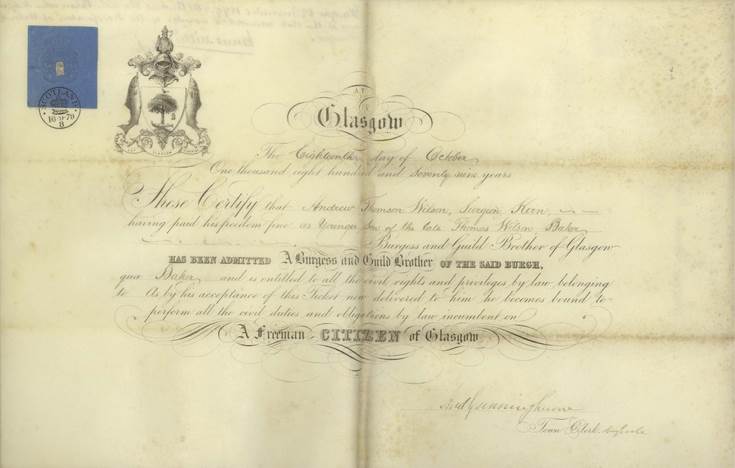 SCOTLAND
AT
Glasgow
The Eighteenth day of October
One thousand eight hundred and Seventy nine years
These Certify that Andrew Thomson Wilson, Surgeon
having paid his freedom fine as Younger Son of the late Thomas Wilson, Baker
Burgess and Guild Brother of Glasgow
HAS BEEN ADMITTED A Burgess and Guild Brother OF THE SAID BURGH,
qua Baker and is entitled to all the civil rights and privileges by law belonging
to As by his acceptance of this Ticket now delivered to him he becomes bound to
perform all the civil duties and obligations by law incumbent on
A Freeman CITIZEN of Glasgow
Town Clerk